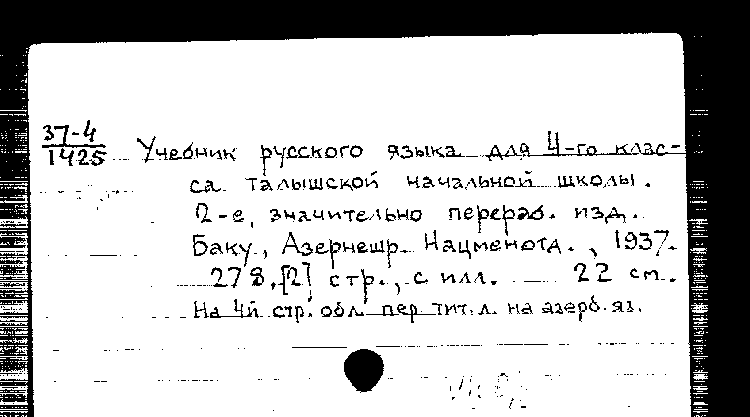 37-4
1425
Учебник русского языка для 4-го клас-
са талышской начальной школы.
2-е, значительно перераб. изд.
Баку, Азернешр. Нацменотд., 1937.
278,[2] стр., с илл. 22 см.
На 4й стр. обл. пер. тит. л. на азерб. яз.